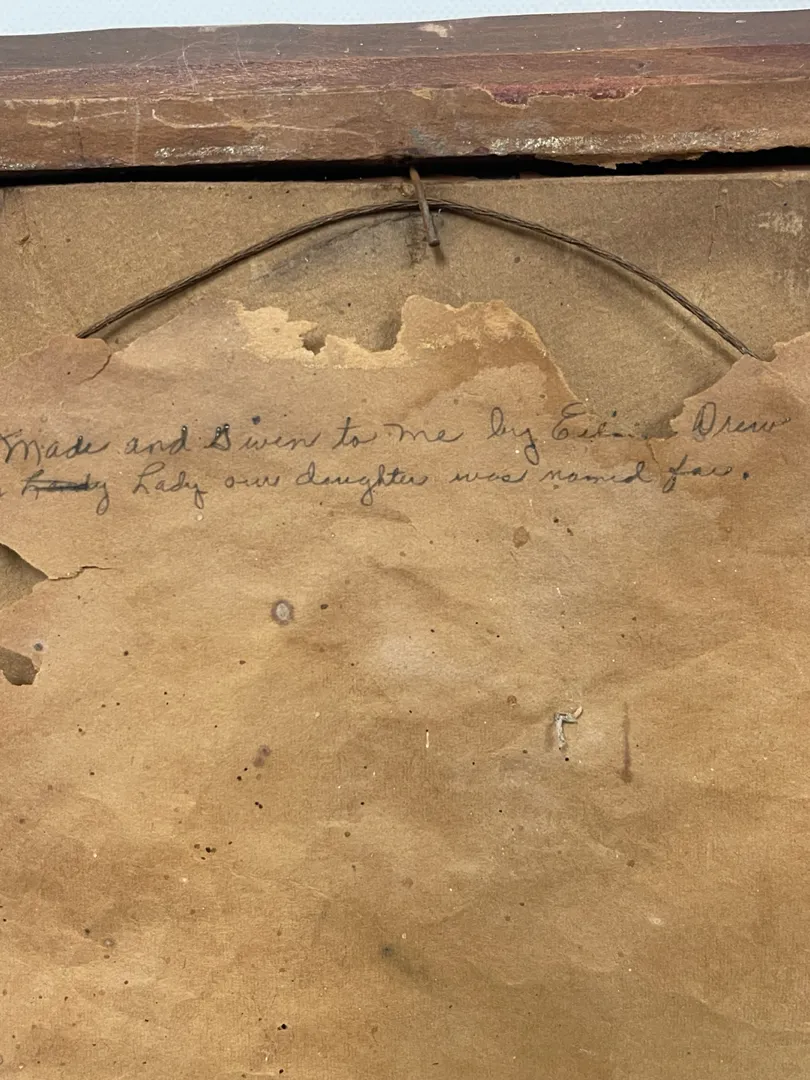 Made and Given to me by Drew
Lady our daughter was named for.